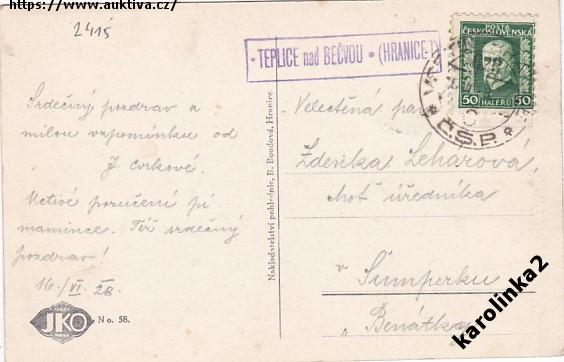 https://www.auktiva.cz/
2415
* TEPLICE nad BEČVOU * (HRANICE 1)
POŠTA
ČESKOSLOVENSKÁ
50 HALÉŘŮ 50
* Č.S.P. *
Srdečný pozdrav a
milou vzpomínku od
J. Cvrkové.
Uctivé poručení pí
mamince. Též srdečný
pozdrav!
16./VI. 28.
JKO
No. 58.
Nakladatelství pohlednic, B. Boudová, Hranice.
Velectěná paní
Zdenka Leharová,
choť úředníka
v Šumperku
„Benátka"
karolinka2